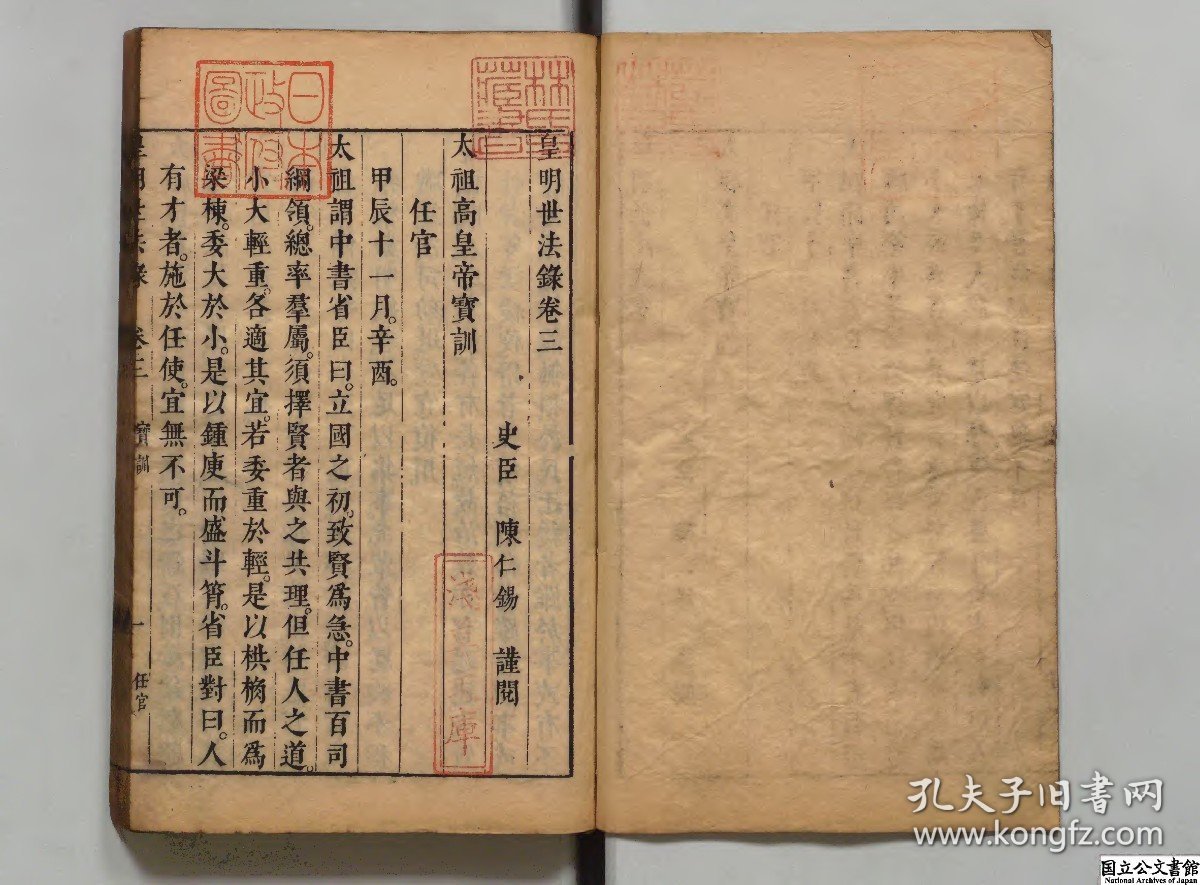 皇明世法錄卷三
史臣 陳仁錫 謹閱
太祖高皇帝寶訓
任官
甲辰十一月。辛酉。
太祖謂中書省臣曰。立國之初。致賢爲急。中書百司
綱領。總率羣屬。須擇賢者與之共理。但任人之道。
小大輕重。各適其宜。若委重於輕。是以栱桷而爲
梁棟。委大於小。是以鍾庾而盛斗筲。省臣對曰。人
有才者。施於任使。宜無不可。
卷三 寶訓 一 任官
日本政府圖書
林氏藏書
淺草文庫
孔夫子旧书网
www.kongfz.com
国立公文書館
National Archives of Japan